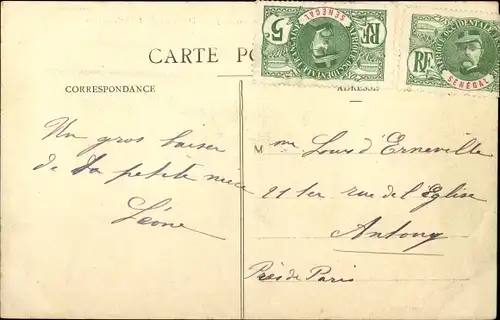 CARTE PO
CORRESPONDANCE
ADRESSE
5
SÉNÉGAL
RF
AFRIQUE OCCIDENTALE FRANÇAISE
RF
SÉNÉGAL
Un gros baiser
de ta petite nièce
Léone
Mme Louis d'Erneville
21 ter rue de l'Eglise
Antony
Près de Paris